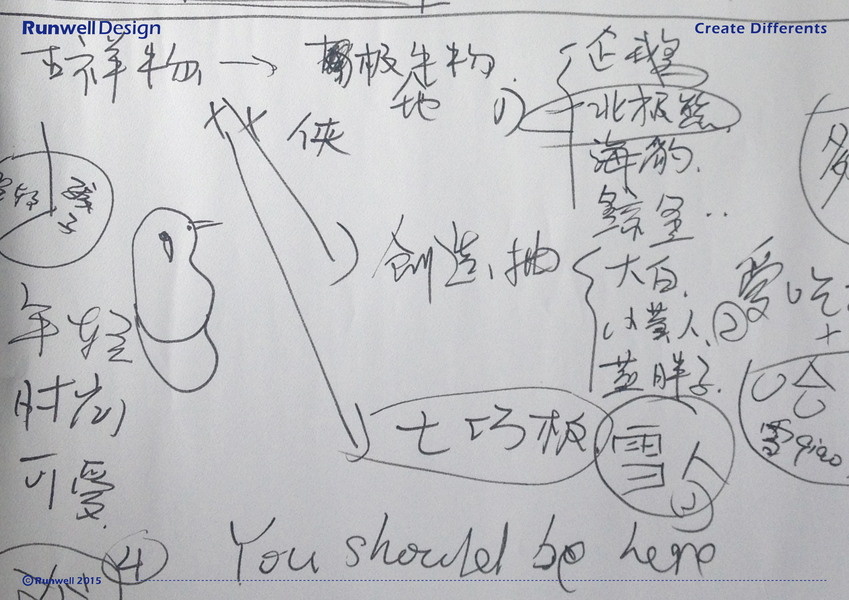 Runwell Design
Create Differents
吉祥物 → 极生物
地
侠
1)
企鹅
北极熊
海豹
鲸鱼..
创造、抽
大白
小黄人 ②
蓝胖子
爱吃
+
年轻
时尚
可爱
七巧板
雪人
③
哈
雪 qiao
④
You should be here
©Runwell 2015